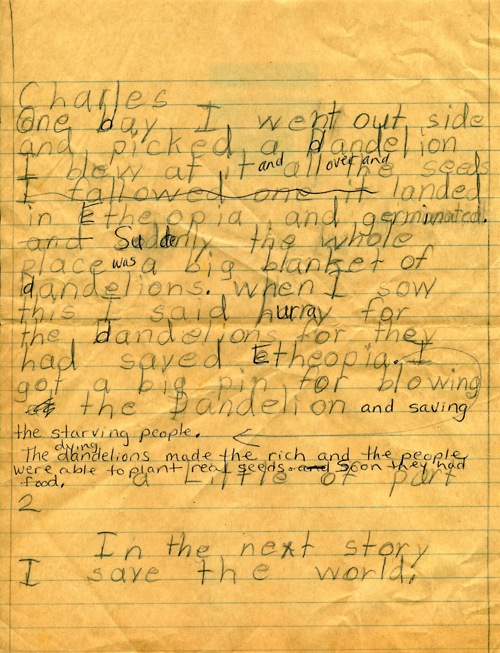 Charles
One day I went out side
and picked a dandelion
I blew at it and all over and the seeds
I fallowed one it landed
in Etheopia and germinated.
and Suddenly the whole
place was a big blanket of
dandelions. when I sow
this I said hurray for
the dandelions for they
had saved Etheopia. I
got a big pin for blowing
the Dandelion and saving
the starving people.
The dying dandelions made the rich and the people
were able to plant real seeds. and soon they had
food. a Little of part
2
In the next story
I save the world.